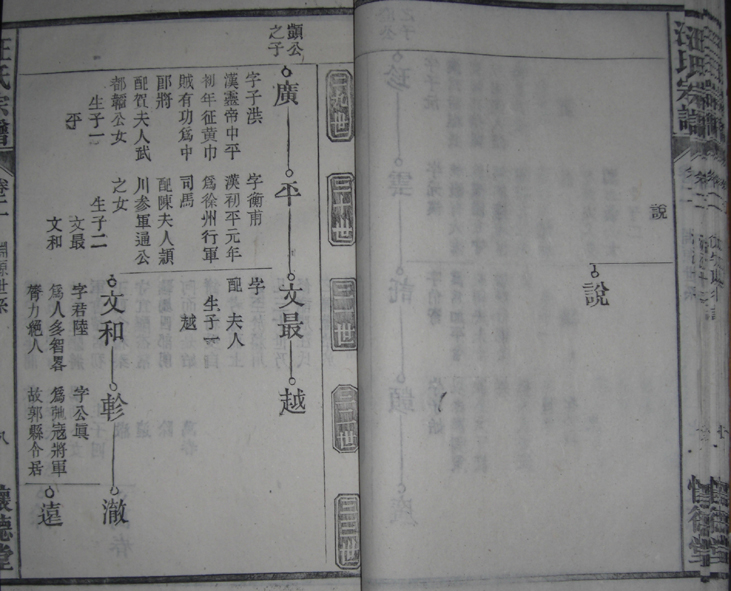 汪氏宗譜
說
說
二九世
三十世
三一世
三二世
三三世
公
之子
廣
字子洪
漢靈帝中平
初年征黃巾
賊有功爲中
郎將
配賀夫人武
都韜公女
生子一
平
平
字衡甫
漢初平元年
爲徐州行軍
司馬
配陳夫人潁
川參軍通公
之女
生子二
文最
文和
文最
字
配 夫人
生子一
越
越
文和
字君陸
爲人多智畧
膂力絕人
軫
字公眞
爲 寇將軍
故郭縣令居
澈
遠
汪氏宗譜
淵源世系
八
懷德堂